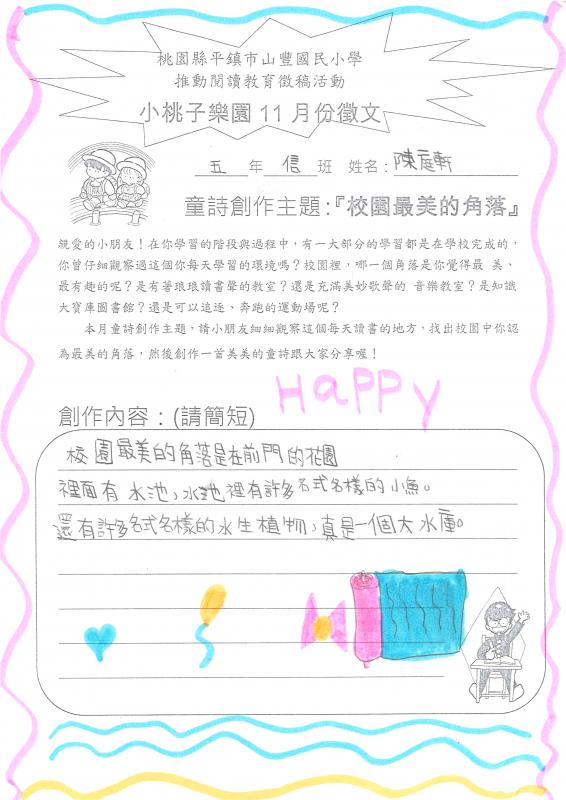 桃園縣平鎮市山豐國民小學
推動閱讀教育徵稿活動
小桃子樂園 11 月份徵文
五 年 信 班 姓名：陳庭軒
童詩創作主題：『校園最美的角落』
親愛的小朋友！在你學習的階段與過程中，有一大部分的學習都是在學校完成的，
你曾仔細觀察過這個你每天學習的環境嗎？校園裡，哪一個角落是你覺得最 美、
最有趣的呢？是有著琅琅讀書聲的教室？還是充滿美妙歌聲的 音樂教室？是知識
大寶庫圖書館？還是可以追逐、奔跑的運動場呢？
本月童詩創作主題，請小朋友細細觀察這個每天讀書的地方，找出校園中你認
為最美的角落，然後創作一首美美的童詩跟大家分享喔！
HAPPY
創作內容：(請簡短)
校園最美的角落是在前門的花園
裡面有水池，水池裡有許多名式名樣的小魚。
還有許多名式名樣的水生植物，真是一個大水庫。